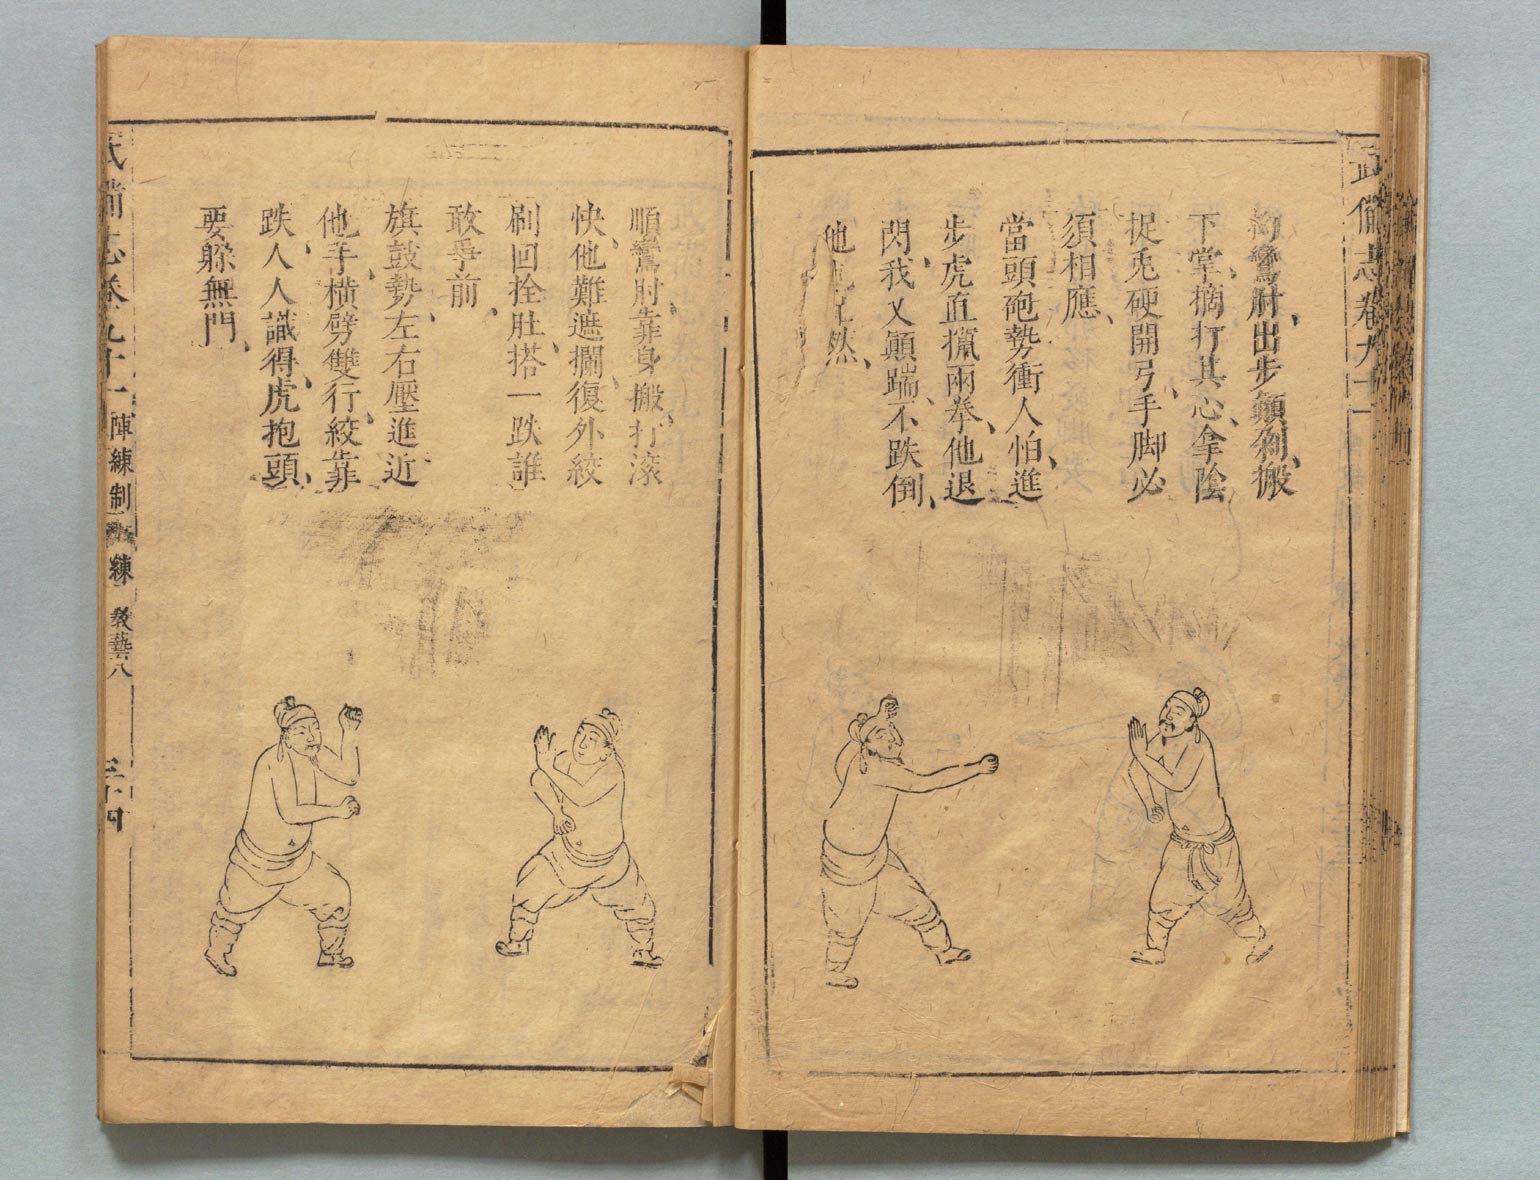 武備志卷九十一
拗鸞肘出步顛剁、搬
下掌、摘打其心、拿陰
捉兎硬開弓、手脚必
須相應、
當頭砲勢衝人怕、進
步虎直攛兩拳、他退
閃、我又顛踹、不跌倒、
他也忙然、
順鸞肘靠身搬、打滚
快、他難遮攔、復外絞
刷回拴肚、搭一跌、誰
敢爭前、
旗鼓勢、左右壓進、近
他手、橫劈雙行、絞靠
跌、人人識得、虎抱頭、
要躲無門、
武備志卷九十一 陣練制 練 教藝八 三十四